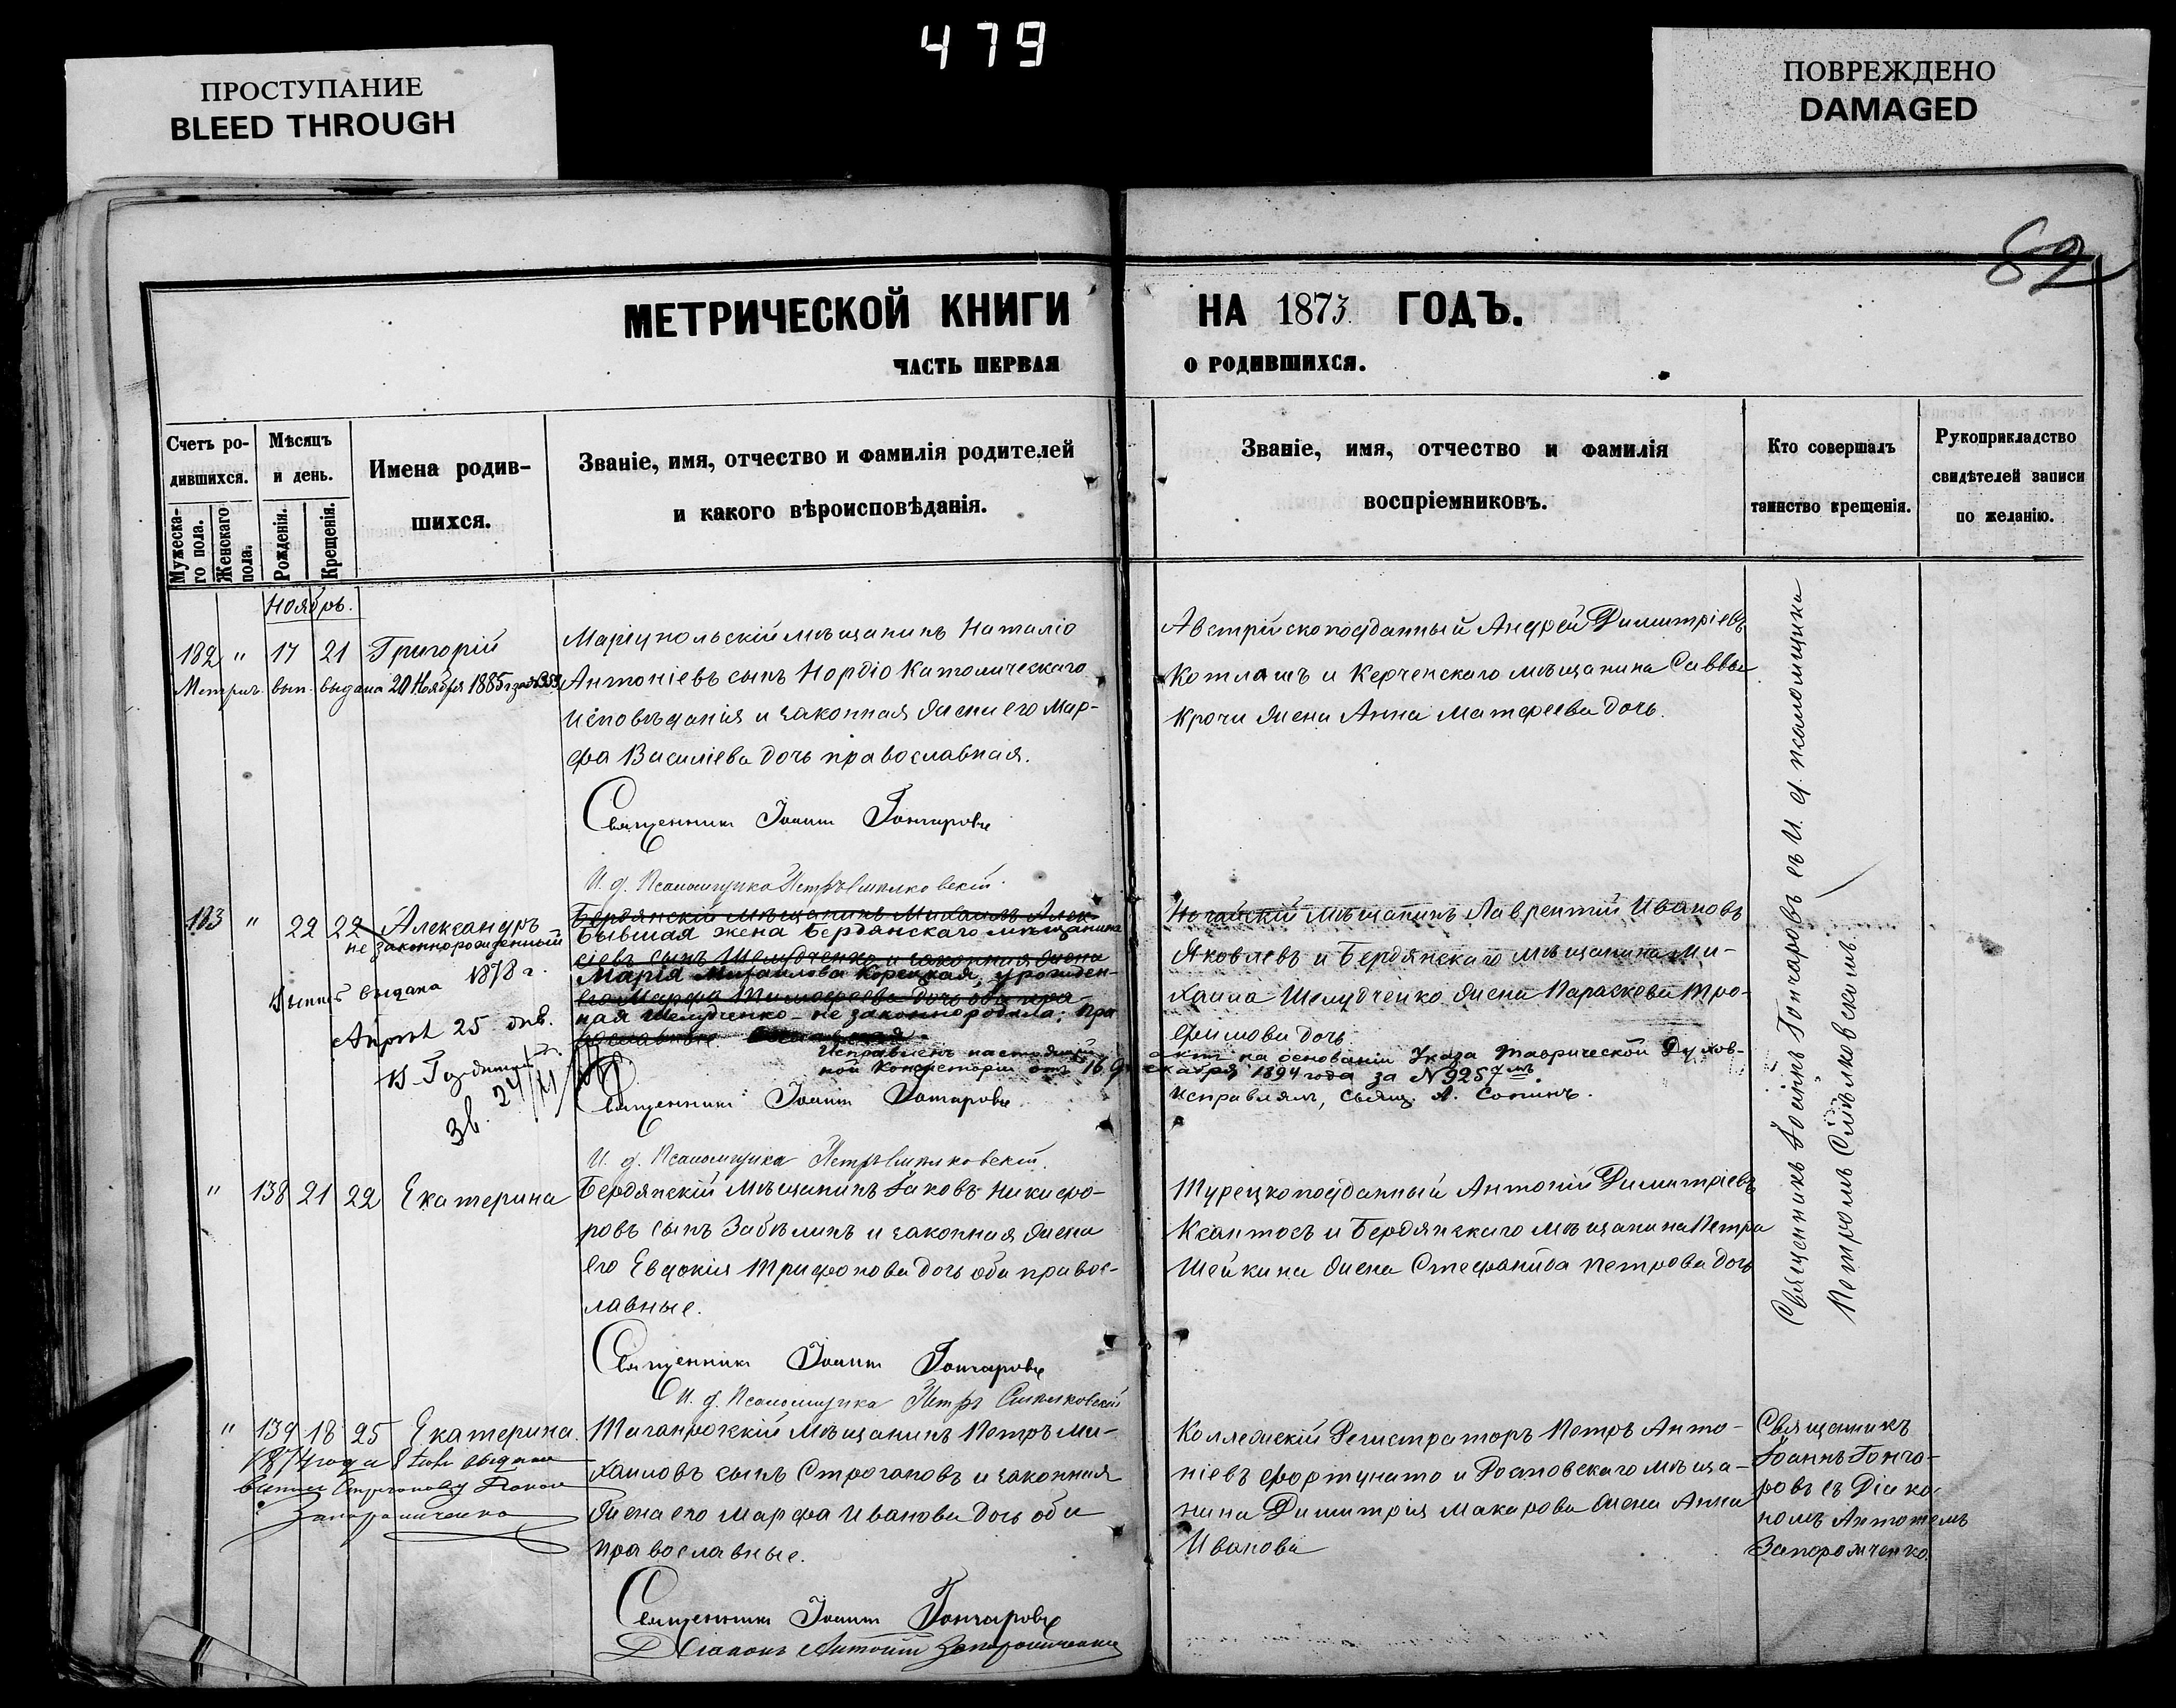 479
ПРОСТУПАНИЕ
BLEED THROUGH
ПОВРЕЖДЕНО
DAMAGED
82
МЕТРИЧЕСКОЙ КНИГИ НА 1873 ГОДЪ.
ЧАСТЬ ПЕРВАЯ О РОДИВШИХСЯ.
Счетъ ро-
дившихся.
Мужеска-
го пола.
Женскаго
пола.
Мѣсяцъ
и день.
Рожденія.
Крещенія.
Имена родив-
шихся.
Званіе, имя, отчество и фамилія родителей
и какого вѣроисповѣданія.
Званіе, имя, отчество и фамилія
воспріемниковъ.
Кто совершалъ
таинство крещенія.
Рукоприкладство
свидѣтелей записи
по желанію.
Ноябрь.
182 " 17 21 Григорій
Метрич. вып. выдана 20 Ноября 1885 г за №
Маріупольскій мѣщанинъ Наталіо
Антоніевъ сынъ Нордіо Католическаго
исповѣданія и законная жена его Мар-
фа Василіева дочь православная.
Священникъ Іоаннъ Гончаровъ
И. д. Псаломщика Петръ
Австрійскоподданный Андрей Димитріевъ
Котлашъ и Керченскаго мѣщанина Саввы
Крочи жена Анна Матфеева дочь.
183 " 22 22 Александръ
незаконнорожденный
Выпись выдана 1878 г.
Апрѣл 25 дня.
Зв. 24/VI
Бердянскій мѣщанинъ Михаилъ Алек-
Бывшая жена Бердянскаго мѣщанина
сіевъ сынъ Шелудченко и законная жена
Марія Михайлова Корецкая, урожден-
его Марфа Тимофеева дочь оба пра-
ная Шелудченко - незаконнородила; пра
вославные
Исправленъ настоящій актъ на основаніи Указа Таврической Духов-
ной Консисторіи отъ 16 Декабря 1894 года за N 9257мъ.
Исправлялъ, Свящ. А. Сопинъ.
Священникъ Іоаннъ Гончаровъ
И. д. Псаломщика Петръ
Ногайскій мѣщанинъ Лаврентій Ивановъ
Яковлевъ и Бердянскаго мѣщанина Ми-
хаила Шелудченко жена Параскева Тро-
фимова дочь
" 138 21 22 Екатерина
Бердянскій мѣщанинъ Іаковъ Никифо-
ровъ сынъ Забѣлинъ и законная жена
его Евдокія Трифонова дочь оба правос-
лавные.
Священникъ Іоаннъ Гончаровъ
И. д. Псаломщика Петръ
Турецкоподданный Антоній Димитріевъ
Ксантосъ и Бердянскаго мѣщанина Петра
Шейкина жена Стефанида Петрова дочь
Священникъ Іоаннъ Гончаровъ съ И. д. псаломщика
Петромъ
" 139 18 25 Екатерина.
1874 года выдана
Таганрогскій мѣщанинъ Петръ Ми-
хаиловъ сынъ Строгановъ и законная
жена его Марфа Иванова дочь оба
православные.
Священникъ Іоаннъ Гончаровъ
Діаконъ Антоній Запорожченко
Коллежскій Регистраторъ Петръ Анто-
ніевъ Фортунато и Ростовскаго мѣща-
нина Димитрія Макарова жена Анна
Иванова
Священникъ
Іоаннъ Гонча-
ровъ съ Діако-
номъ Антоніемъ
Запорожченко.